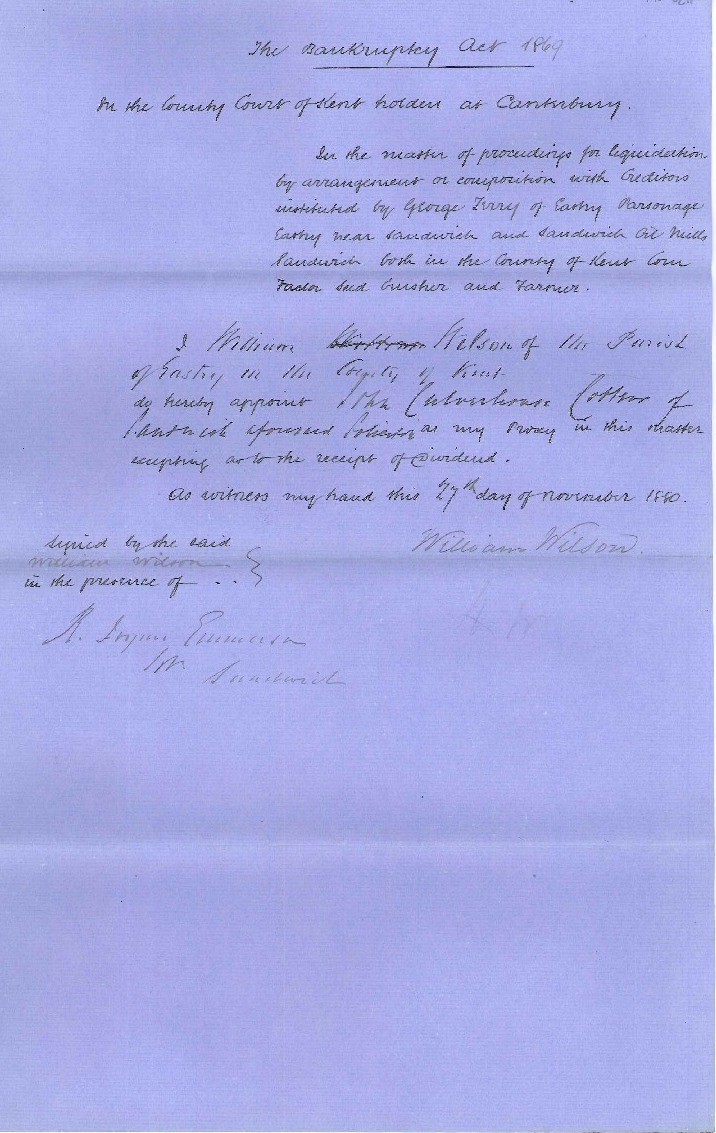 The Bankruptcy Act 1869
In the County Court of Kent holden at Canterbury.
In the matter of proceedings for liquidation
by arrangement or composition with Creditors
instituted by George Terry of Eastry Parsonage
Eastry near Sandwich and Sandwich Oil Mills
Sandwich both in the County of Kent Corn
Factor Seed Crusher and Farmer.
I William Wilson of the Parish
of Eastry in the County of Kent
do hereby appoint John Culverhouse Cottew of
Sandwich aforesaid Solicitor as my Proxy in this matter
excepting as to the receipt of Dividend.
As witness my hand this 27th day of November 1880.
Signed by the said
William Wilson
in the presence of . . }
William Wilson.
R. Emmerson
Sandwich